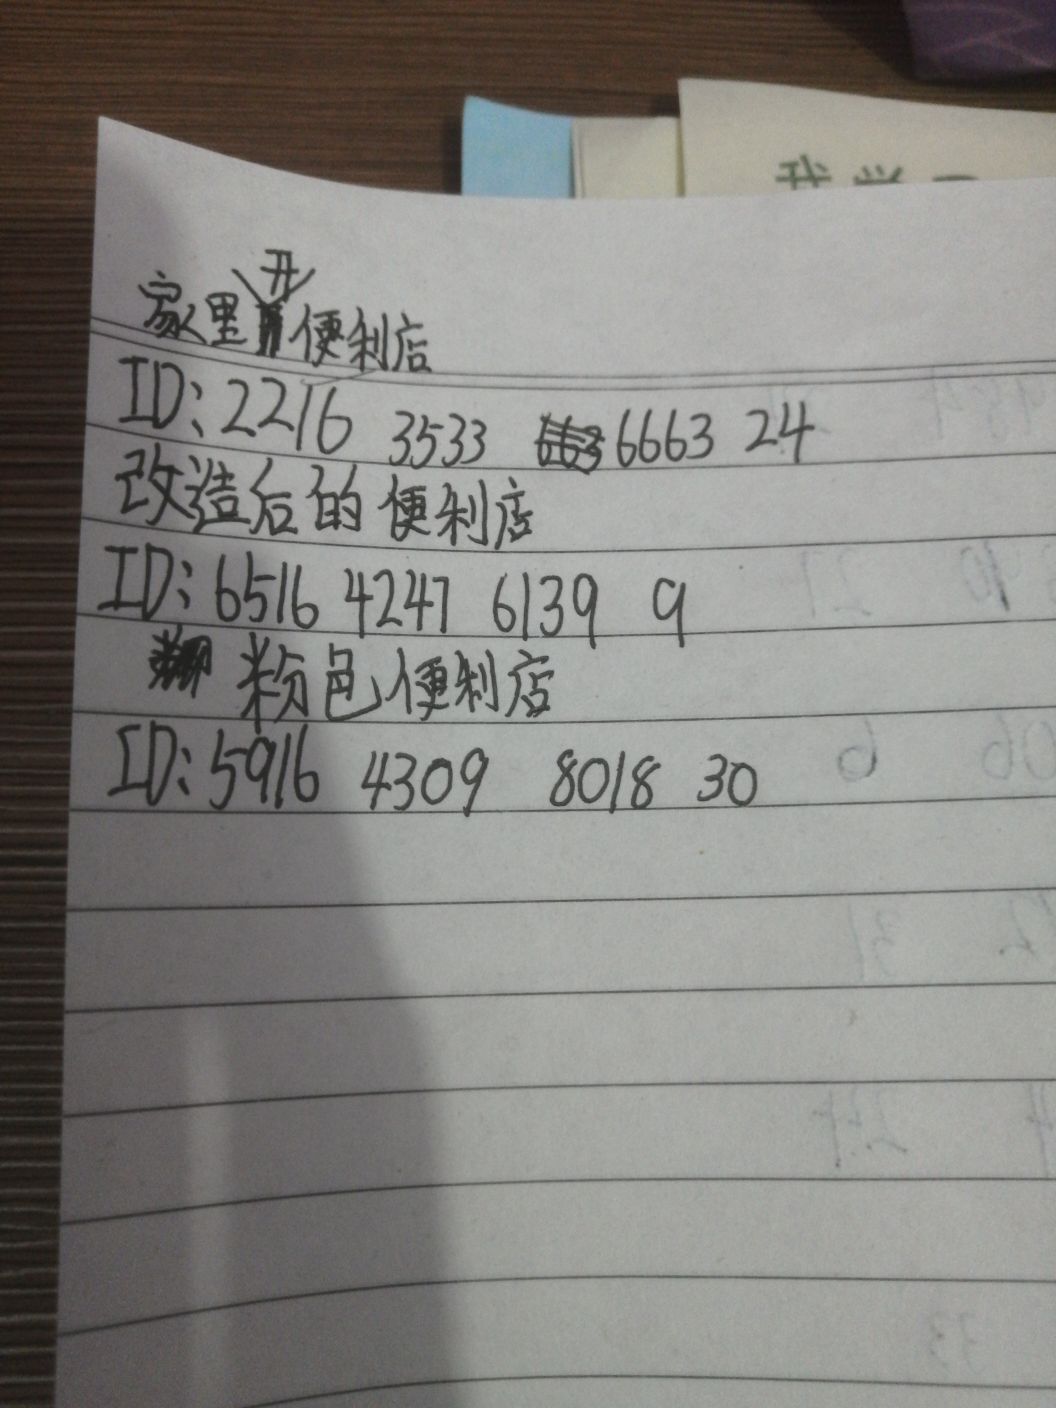 家里开便利店
ID:2216 3533 6663 24
改造后的便利店
ID:6516 4247 6139 9
粉色便利店
ID:5916 4309 8018 30